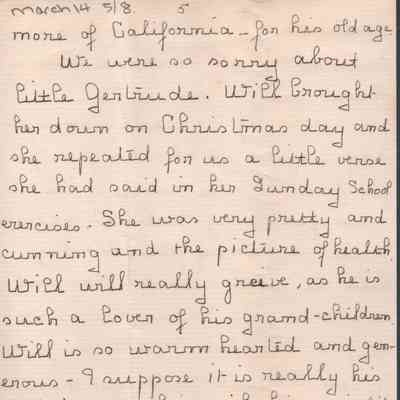 March 14 5/8. 5
more of California - for his old age
We were so sorry about
little Gertrude. Will brought
her down on Christmas day and
she repeated for us a little verse
she had said in her Sunday School
exercises - She was very pretty and
cunning and the picture of health
Will will really greive, as he is
such a lover of his grand-children.
Will is so warm hearted and gen-
erous - I suppose it is really his